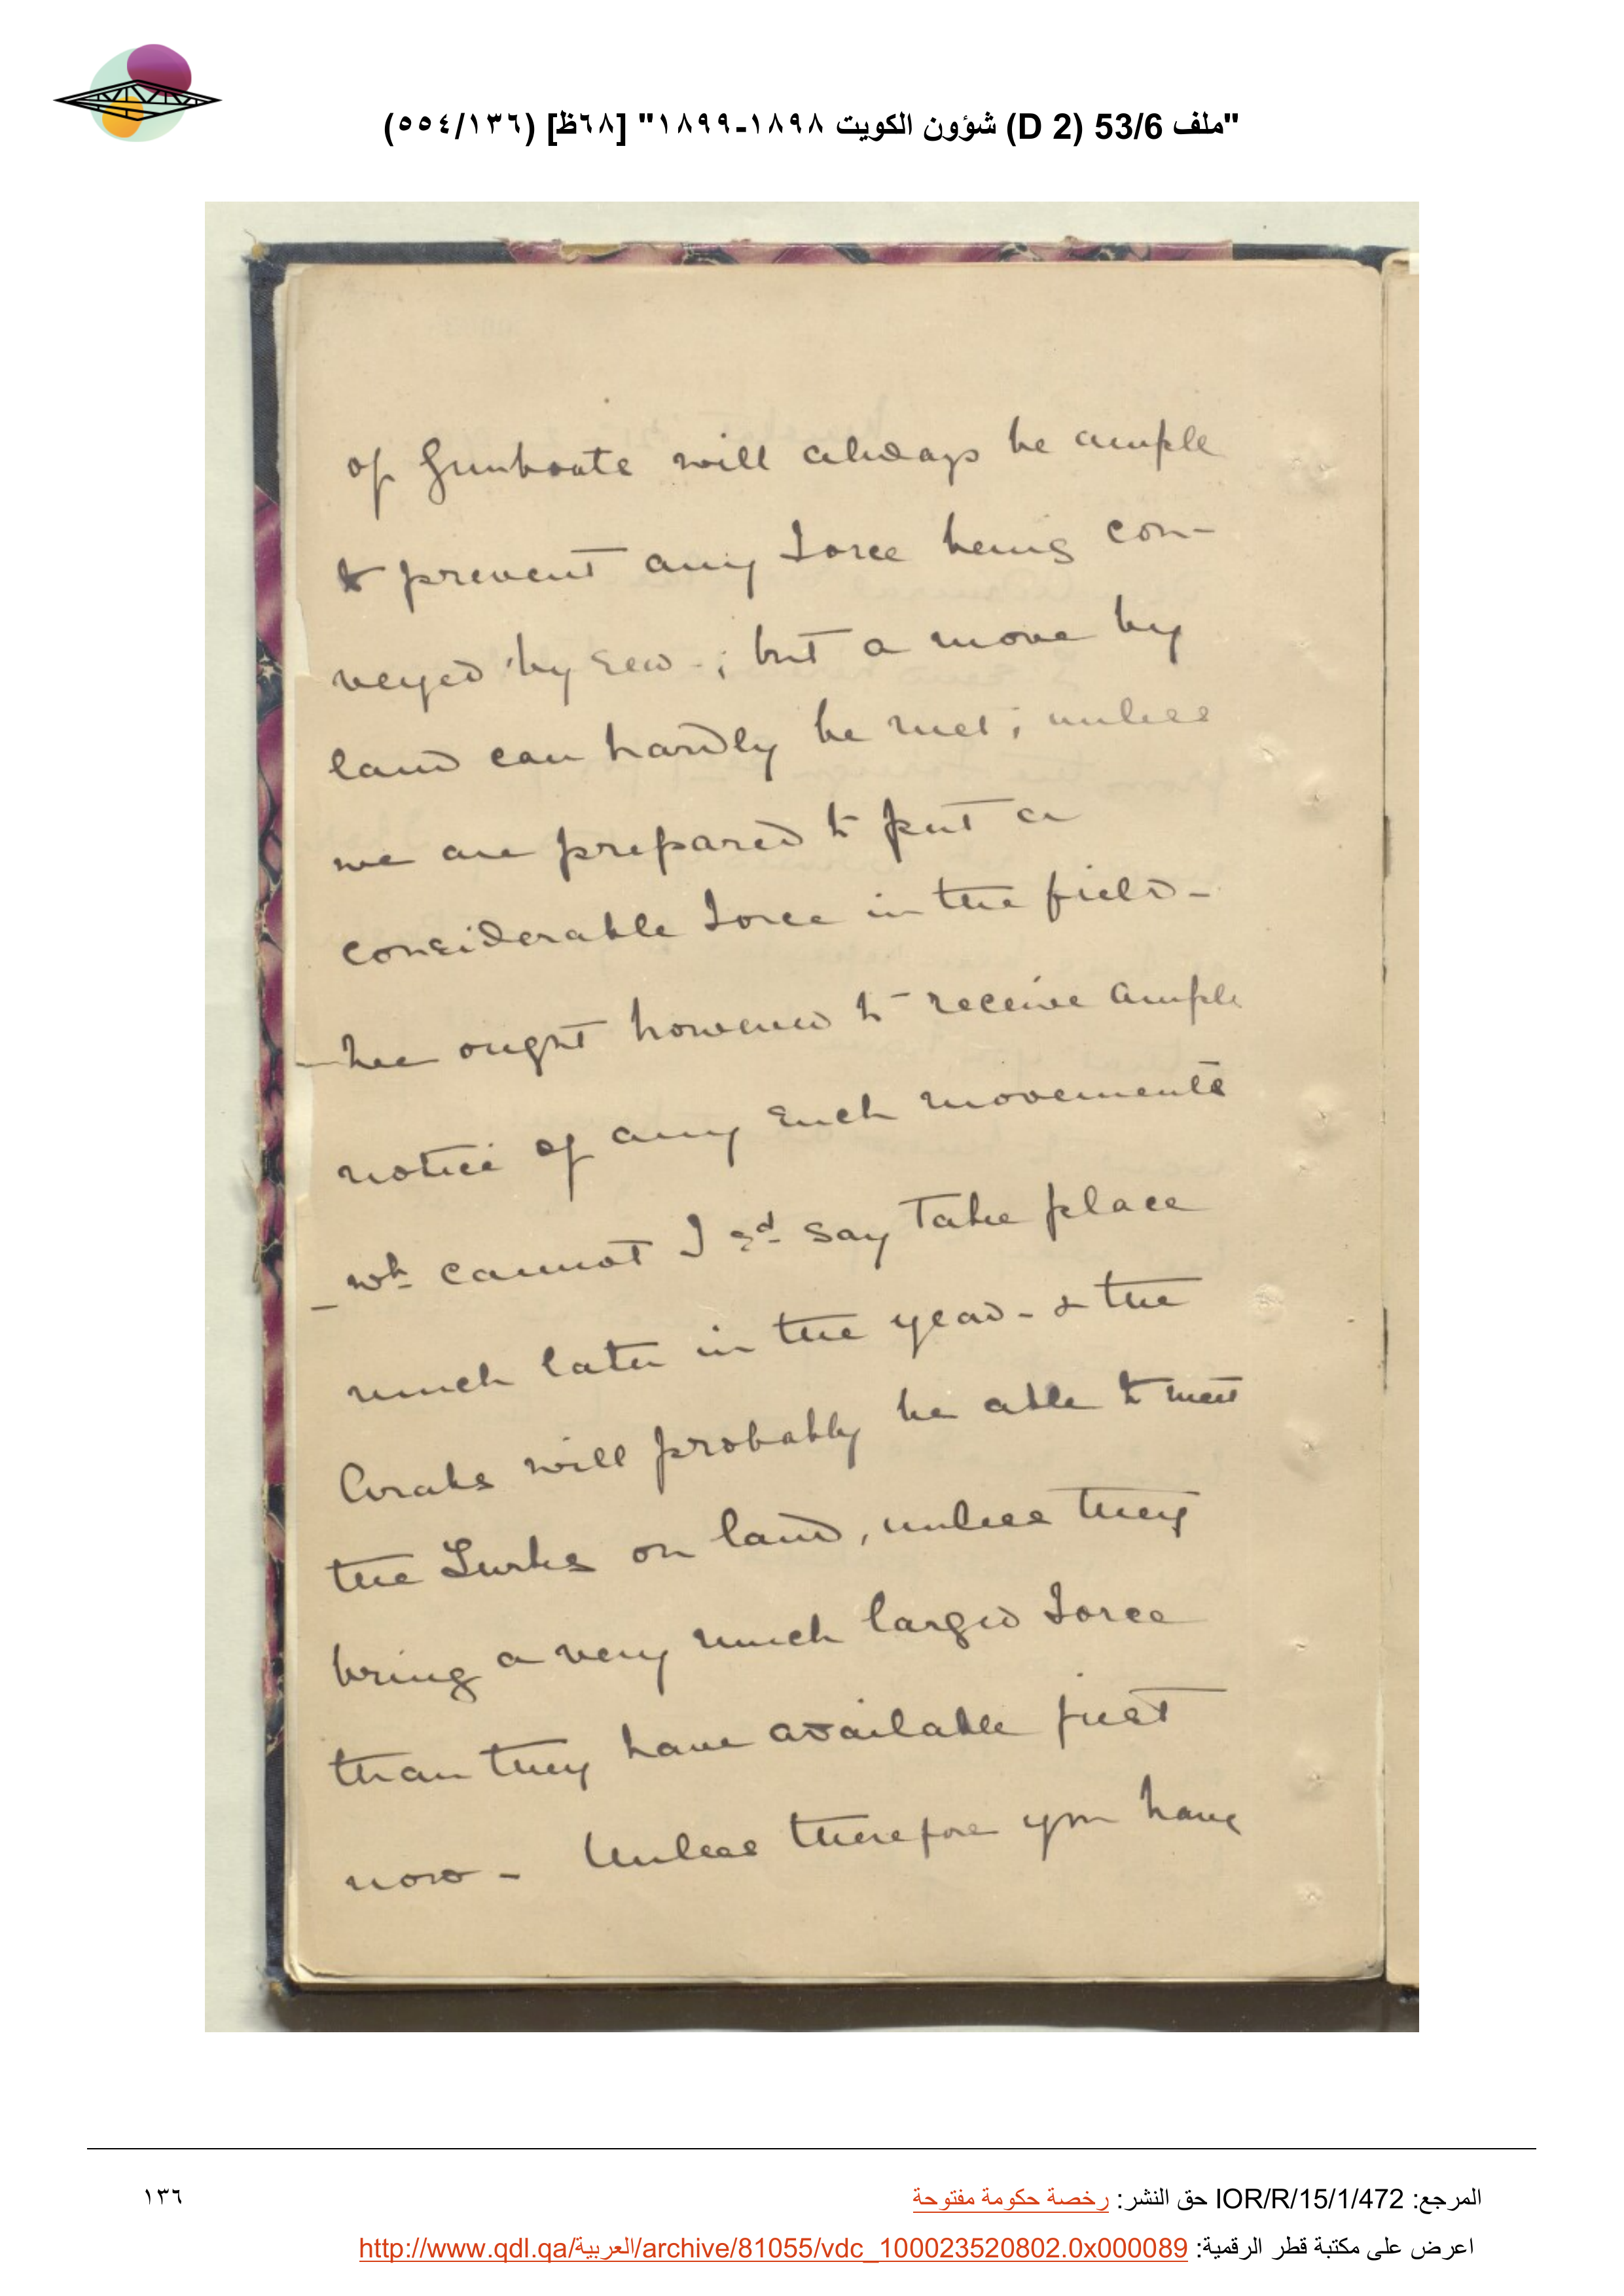 "ملف 53/6 (D 2) شؤون الكويت ١٨٩٨-١٨٩٩" [٦٨ظ] (٥٥٤/١٣٦)
of Gunboats will always be ample
to prevent any force being con-
veyed by sea -; but a move by
land can hardly be met; unless
we are prepared to put a
considerable force in the field -
- We ought however to receive ample
notice of any such movements
- wh cannot I sd say take place
much later in the year - & the
Arabs will probably be able to meet
the Turks on land, unless they
bring a very much larger force
than they have available just
now - Unless therefore you have
المرجع: IOR/R/15/1/472 حق النشر: رخصة حكومة مفتوحة
١٣٦
اعرض على مكتبة قطر الرقمية: http://www.qdl.qa/العربية/archive/81055/vdc_100023520802.0x000089